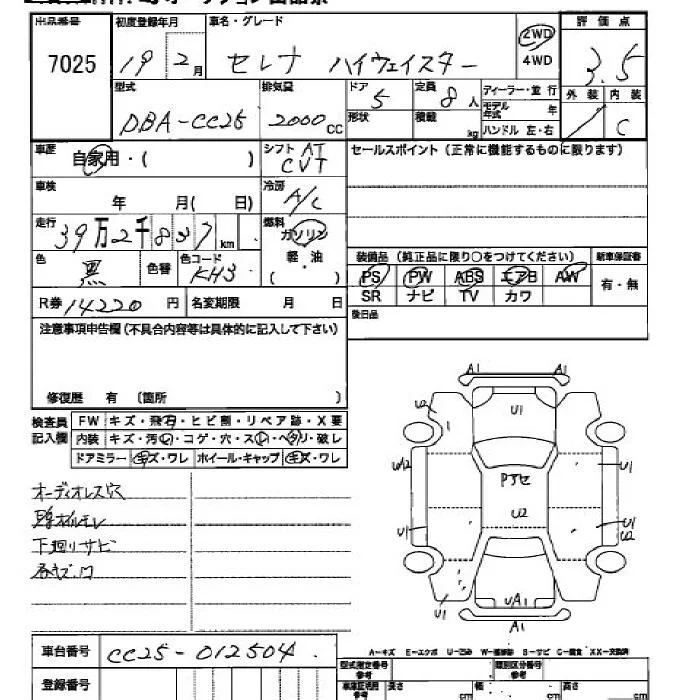 出品番号 初度登録年月 車名・グレード 評価点
7025 19 2月 セレナ ハイウェイスター 2WD 4WD 3.5
型式 排気量 ドア 5 定員 8人 ディーラー・並行 外装 内装
DBA-CC25 2000cc 形状 積載 kg モデル年式 年 ハンドル 左・右 C
車歴 自家用・( ) シフト AT CVT セールスポイント(正常に機能するものに限ります)
車検 年 月( 日) 冷房 A/C
走行 39万2千837km 燃料 ガソリン 軽・油 ( )
色 黒 色替 色コード KH3 装備品(純正品に限り○をつけてください) 新車保証書
PS PW ABS エアB AW 有・無
R券 14220円 名変期限 月 日 SR ナビ TV カワ
注意事項申告欄(不具合内容等は具体的に記入して下さい) 後日品
修復歴 有 〔箇所 〕
検査員記入欄 FW キズ・飛石・ヒビ割・リペア跡・X要
内装 キズ・汚レ・コゲ・穴・スレ・ヘタリ・破レ
ドアミラー キズ・ワレ ホイール・キャップ キズ・ワレ
オーディオレス穴
下廻りサビ
A1 A1
U2 U1
UA2 U1
U2
U1 U1 U2
U1 UA1
A1
A-キズ E-エクボ U-凹ミ W-補修跡 S-サビ C-腐食 XX-交換済
車台番号 CC25-012504 型式指定番号 参考 類別区分番号 参考
登録番号 長さ cm 幅 cm 高さ cm